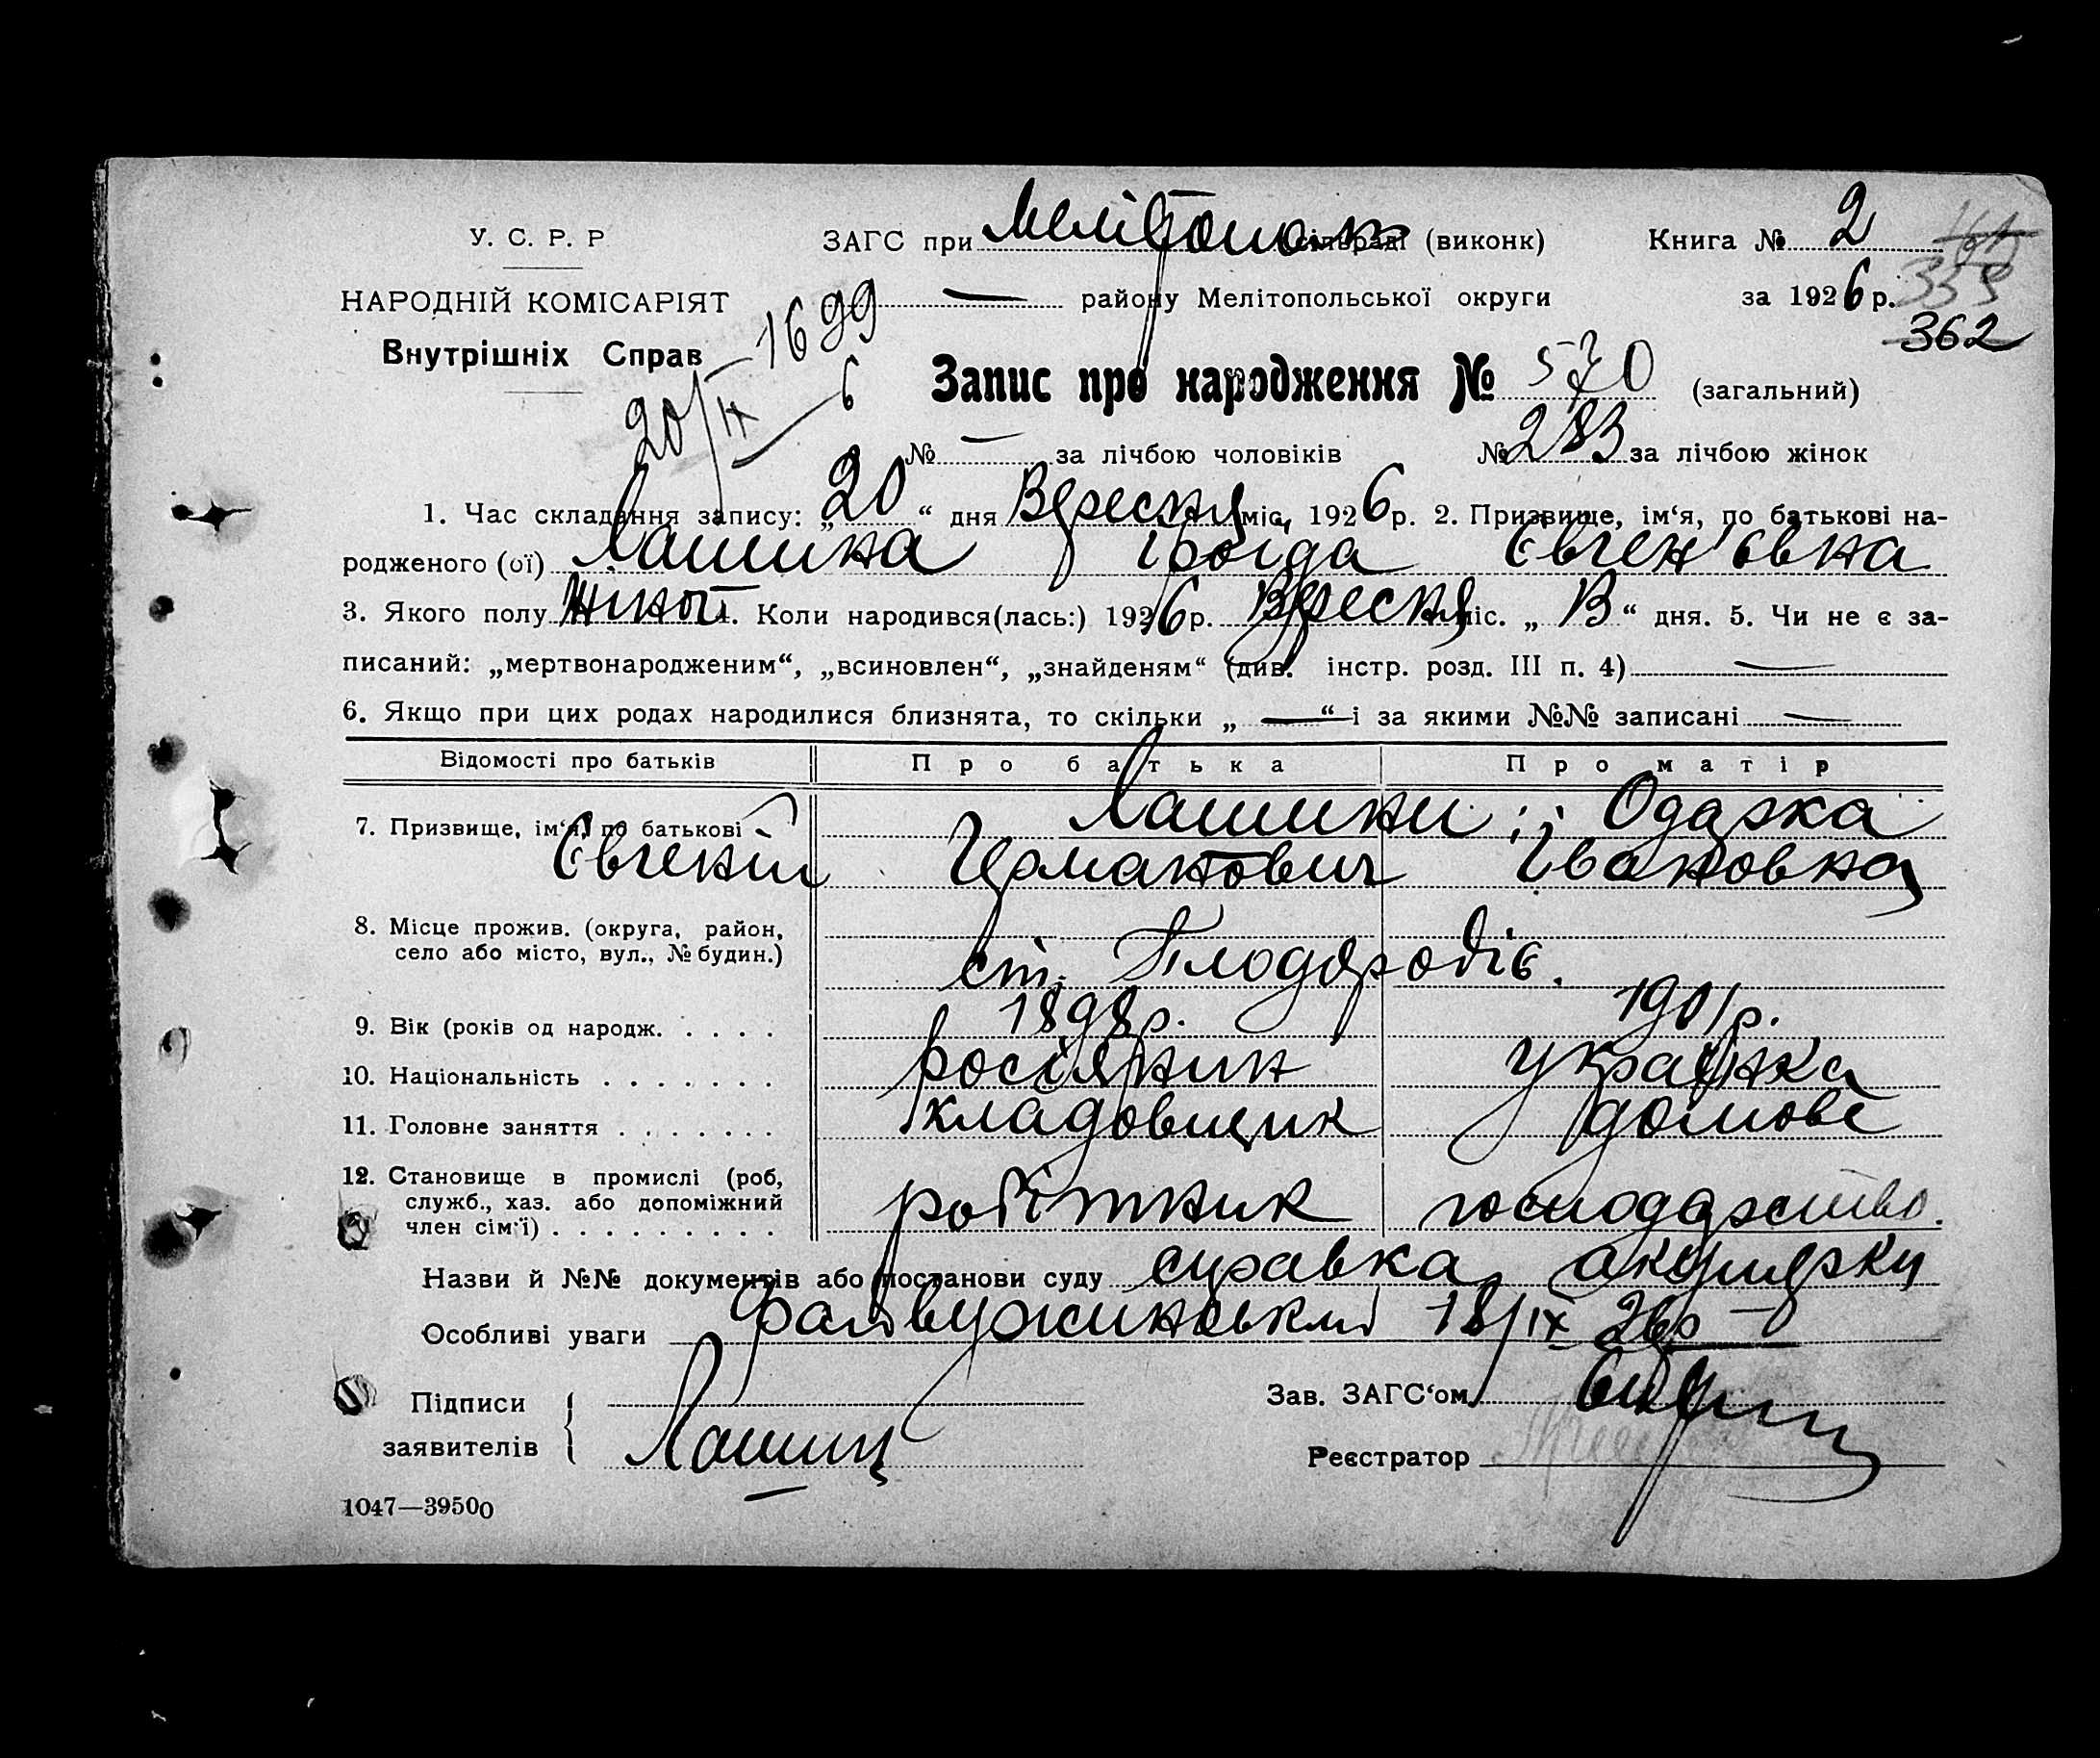 У. С. Р. Р
ЗАГС при Мелітополь сільраді (виконк) Книга № 2
НАРОДНІЙ КОМІСАРІЯТ — району Мелітопольської округи за 1926 р. 353
362
Внутрішніх Справ
1699
20/IX—6
Запис про народження № 570 (загальний)
№ — за лічбою чоловіків № 283 за лічбою жінок
1. Час складання запису: „20“ дня Вересня міс, 1926 р. 2. Призвище, ім‘я, по батькові на-
родженого (ої) Лашина Іроїда Євген'євна
3. Якого полу жіноч. 4. Коли народився(лась:) 1926 р. Вересня міс. „13“ дня. 5. Чи не є за-
писаний: „мертвонародженим“, „всиновлен“, „знайденям“ (див. інстр. розд. III п. 4) —
6. Якщо при цих родах народилися близнята, то скільки „—“ і за якими №№ записані —
Відомості про батьків Про батька Про матір
7. Призвище, ім‘я, по батькові Лашини: Одарка
Євгений Германович Івановна
8. Місце прожив. (округа, район,
село або місто, вул., № будин.) ст. Плодородіє.
9. Вік (років од народж. . . . . 1898 р. 1901 р.
10. Національність . . . . . . . росіянин українка
11. Головне заняття . . . . . . . кладовщик домове
12. Становище в промислі (роб,
служб., хаз. або допоміжний
член сім‘ї) . . . . . . . . . робітник господарство.
Назви й №№ документів або постанови суду справка акушерки
Особливі уваги 18/IX 26р
Підписи
заявителів Лашин
Зав. ЗАГС‘ом
Реєстратор
1047—39500